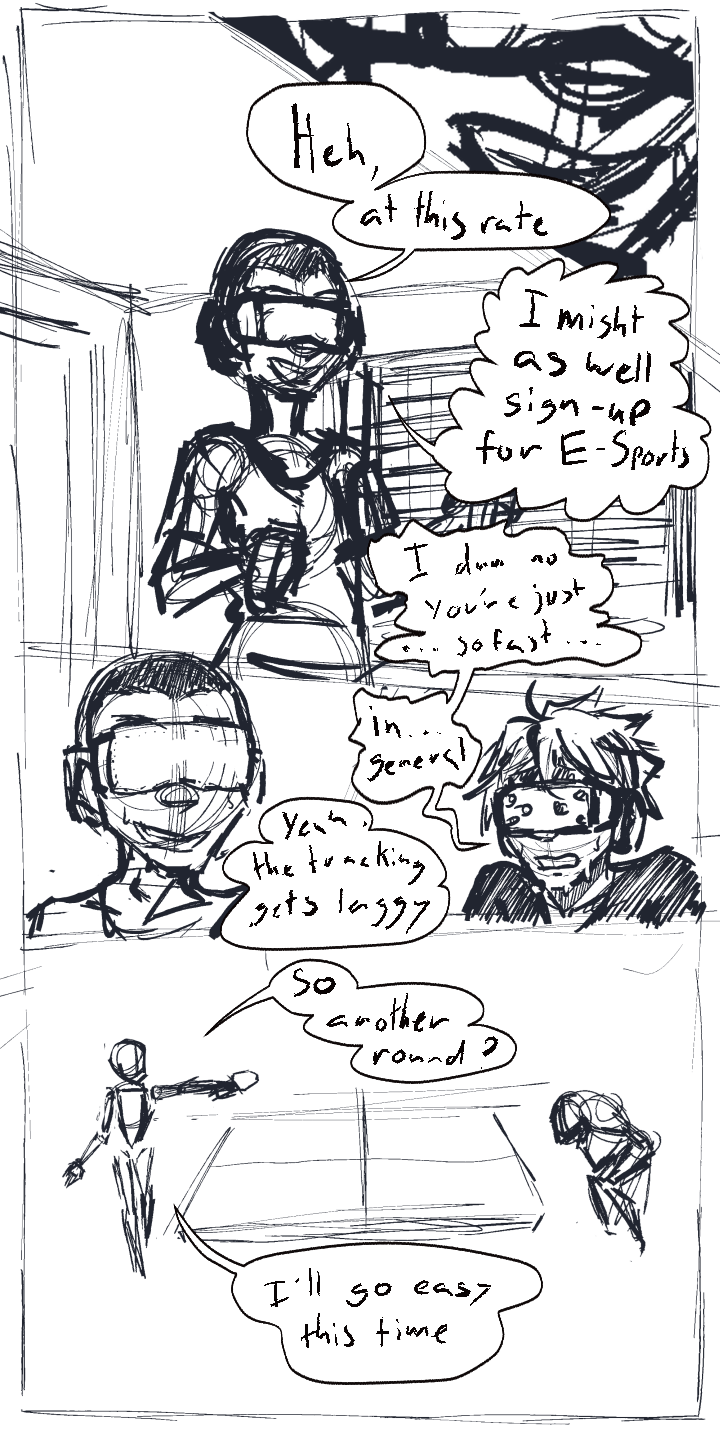 Heh,
at this rate
I might
as well
sign-up
for E-Sports
I dun no
you're just
... so fast ...
in...
general
Yeah,
the tracking
gets laggy
So
another
round?
I'll go easy
this time